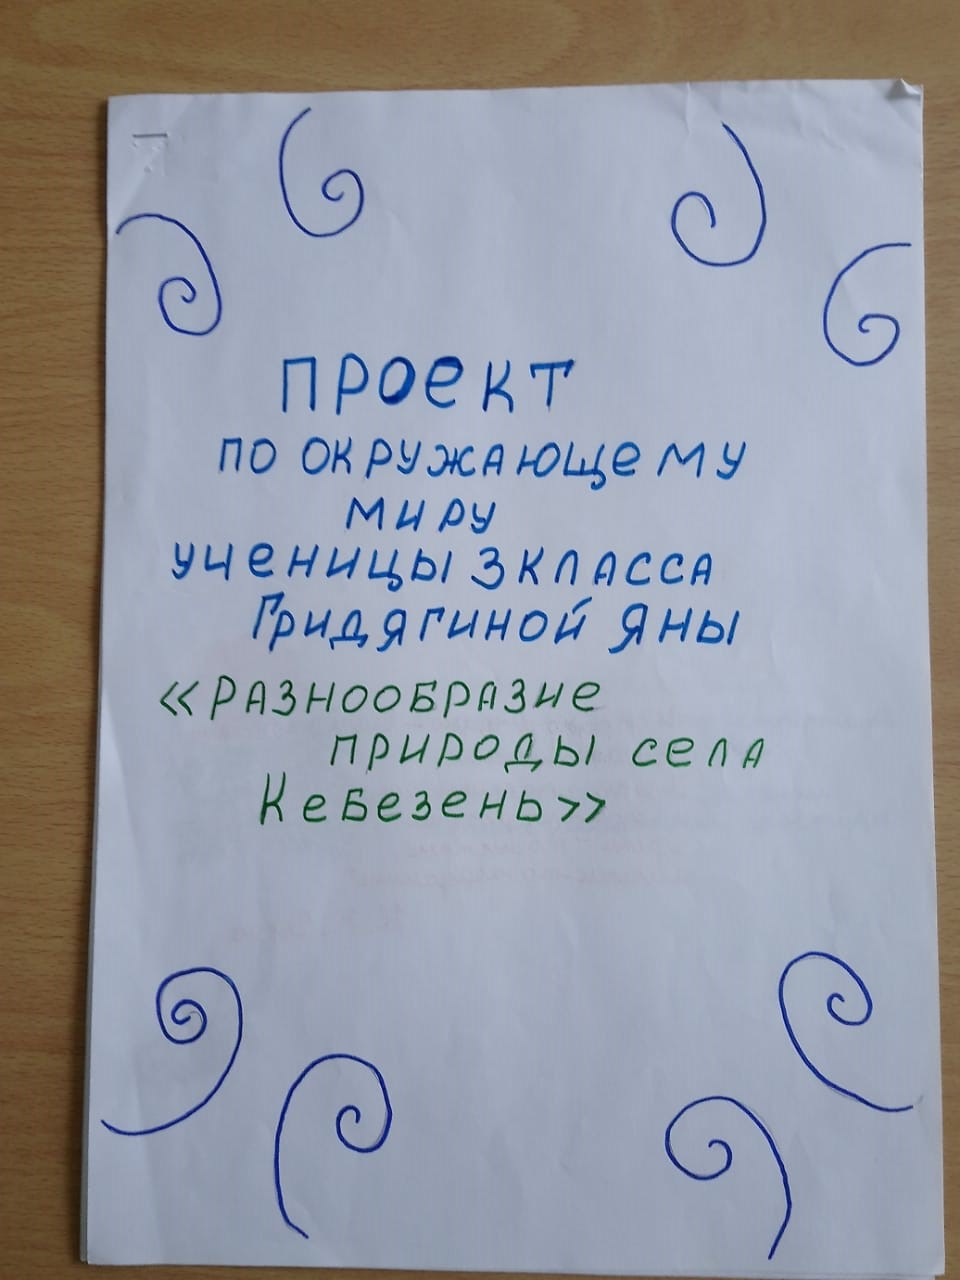 ПРОЕКТ
ПО ОКРУЖАЮЩЕМУ
МИРУ
УЧЕНИЦЫ 3 КЛАССА
ГРИДЯГИНОЙ ЯНЫ
«РАЗНООБРАЗИЕ
ПРИРОДЫ СЕЛА
КЕБЕЗЕНЬ»